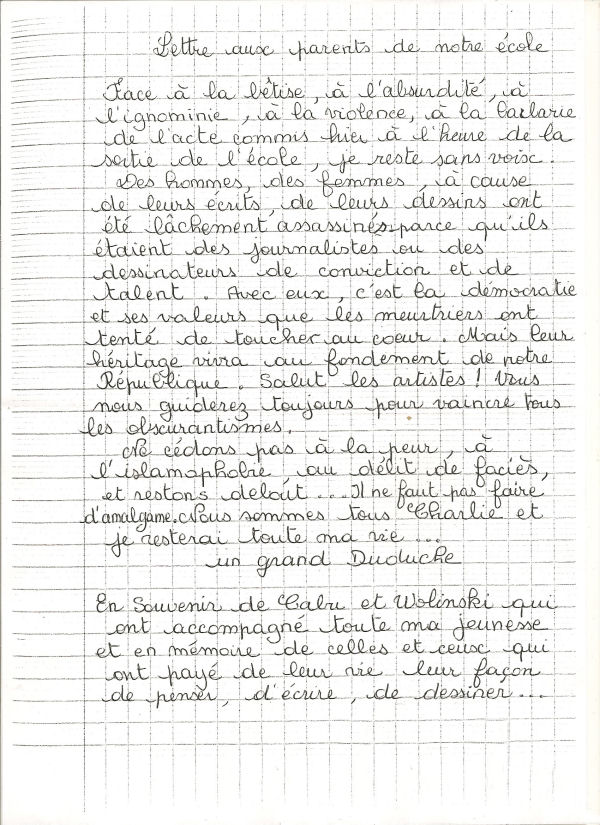 Lettre aux parents de notre école
Face à la bêtise, à l'absurdité, à
l'ignominie, à la violence, à la barbarie
de l'acte commis hier à l'heure de la
sortie de l'école, je reste sans voix.
Des hommes, des femmes, à cause
de leurs écrits, de leurs dessins ont
été lâchement assassinés parce qu'ils
étaient des journalistes ou des
dessinateurs de conviction et de
talent. Avec eux, c'est la démocratie
et ses valeurs que les meurtriers ont
tenté de toucher au coeur. Mais leur
héritage vivra au fondement de notre
République. Salut les artistes! Vous
nous guiderez toujours pour vaincre tous
les obscurantismes.
Ne cédons pas à la peur, à
l'islamophobie, au délit de faciès,
et restons debout... Il ne faut pas faire
d'amalgame. Nous sommes tous Charlie et
je resterai toute ma vie...
un grand Duduche
En Souvenir de Cabu et Wolinski qui
ont accompagné toute ma jeunesse
et en mémoire de celles et ceux qui
ont payé de leur vie leur façon
de penser, d'écrire, de dessiner...